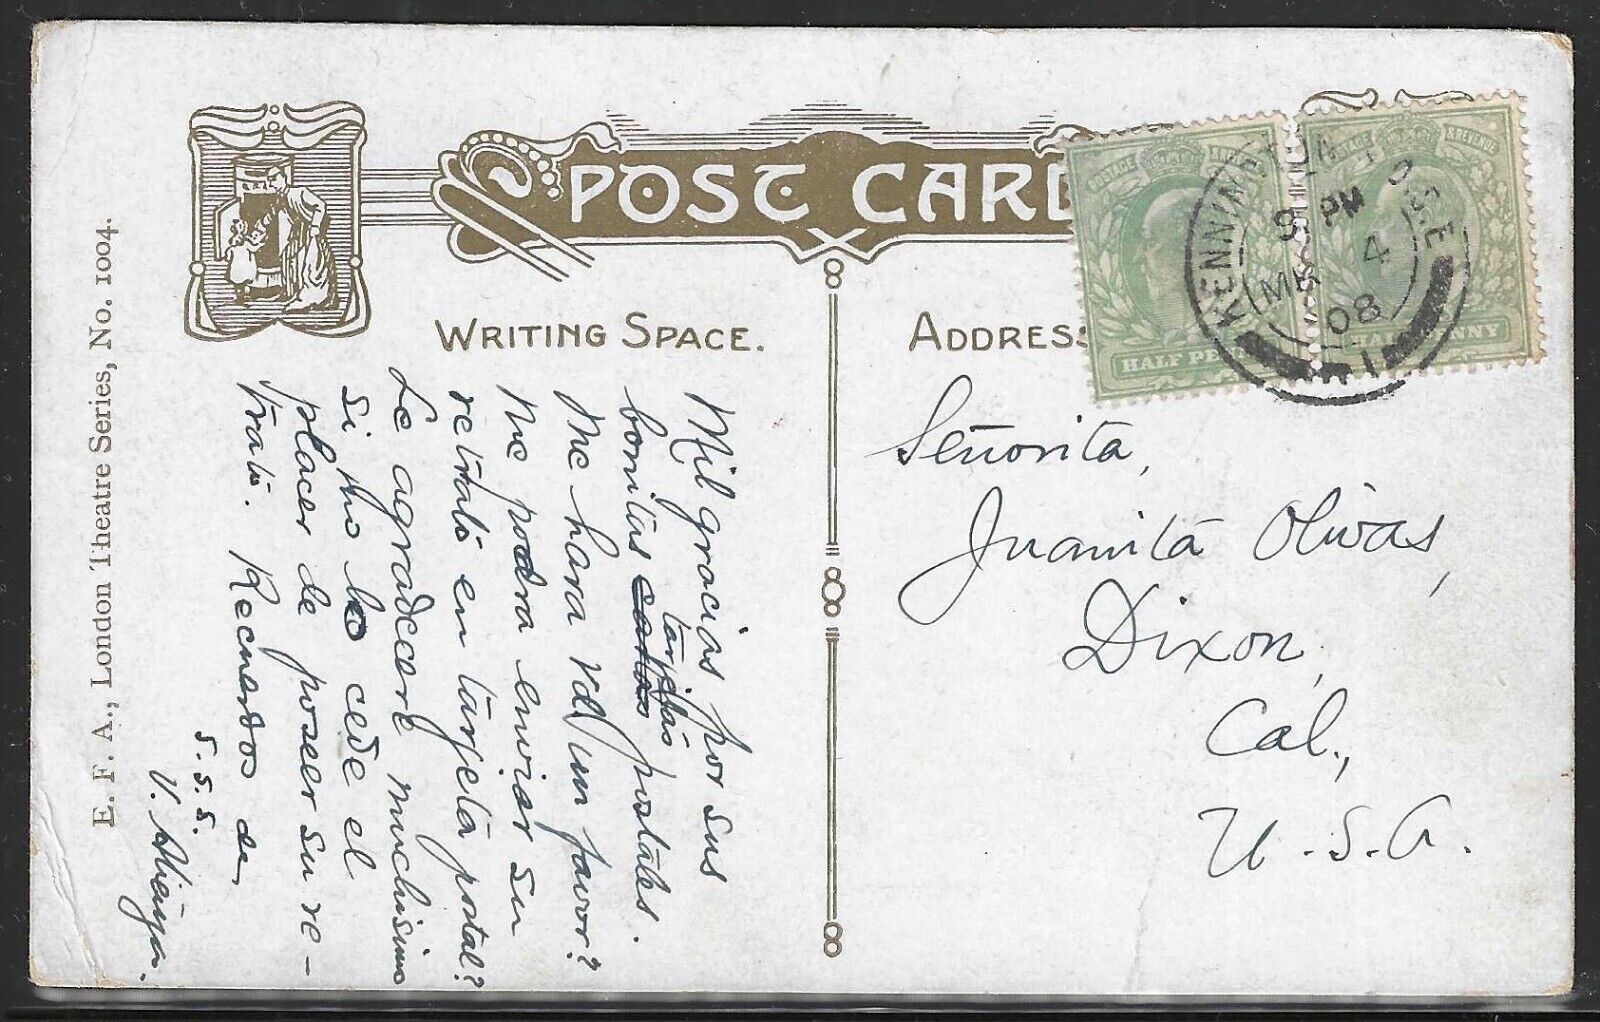 POST CARD
WRITING SPACE.
ADDRESS
E. F. A., London Theatre Series, No. 1004.
Mil gracias por sus
bonitas tarjetas postales.
Me hara Vd un favor?
Me podra enviar su
retrato en targeta postal?
Le agradecere muchisimo
si me cede el
placer de poseer su re-
trato. Recuerdos de
S.S.S.
V.
Señorita,
Juanita Olivas,
Dixon,
Cal.,
U.S.A.
POSTAGE & REVENUE
HALF PENNY
POSTAGE & REVENUE
HALF PENNY
KENNINGTON S.E
8 PM
MR 4
08